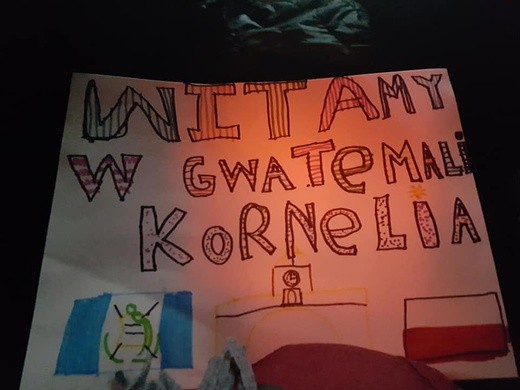 WITAMY
W GWATeMALi
KORNeLiA